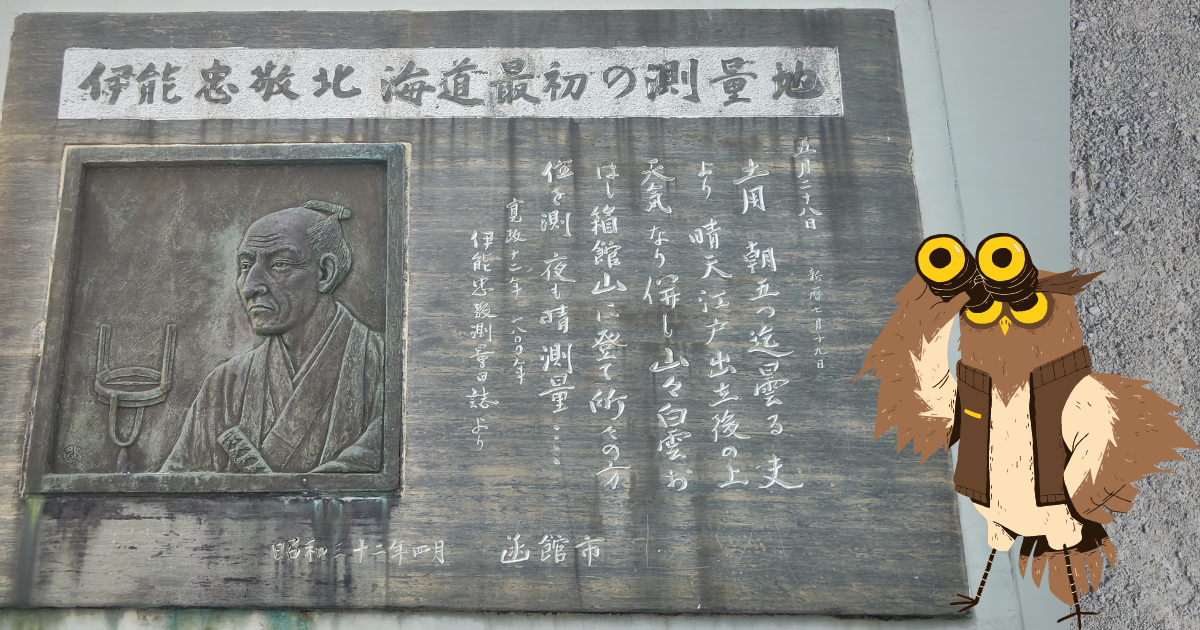 伊能忠敬北海道最初の測量地
五月二十八日
新暦七月十九日
土用 朝五つ迄曇る 夫
より 晴天 江戸出立後の上
天気なり 併し山々白雲お
ほし 箱館山に登て所々の方
位を測 夜も晴 測量……
寛政十二年 一八〇〇年
伊能忠敬測量日誌より
昭和三十二年四月
函館市